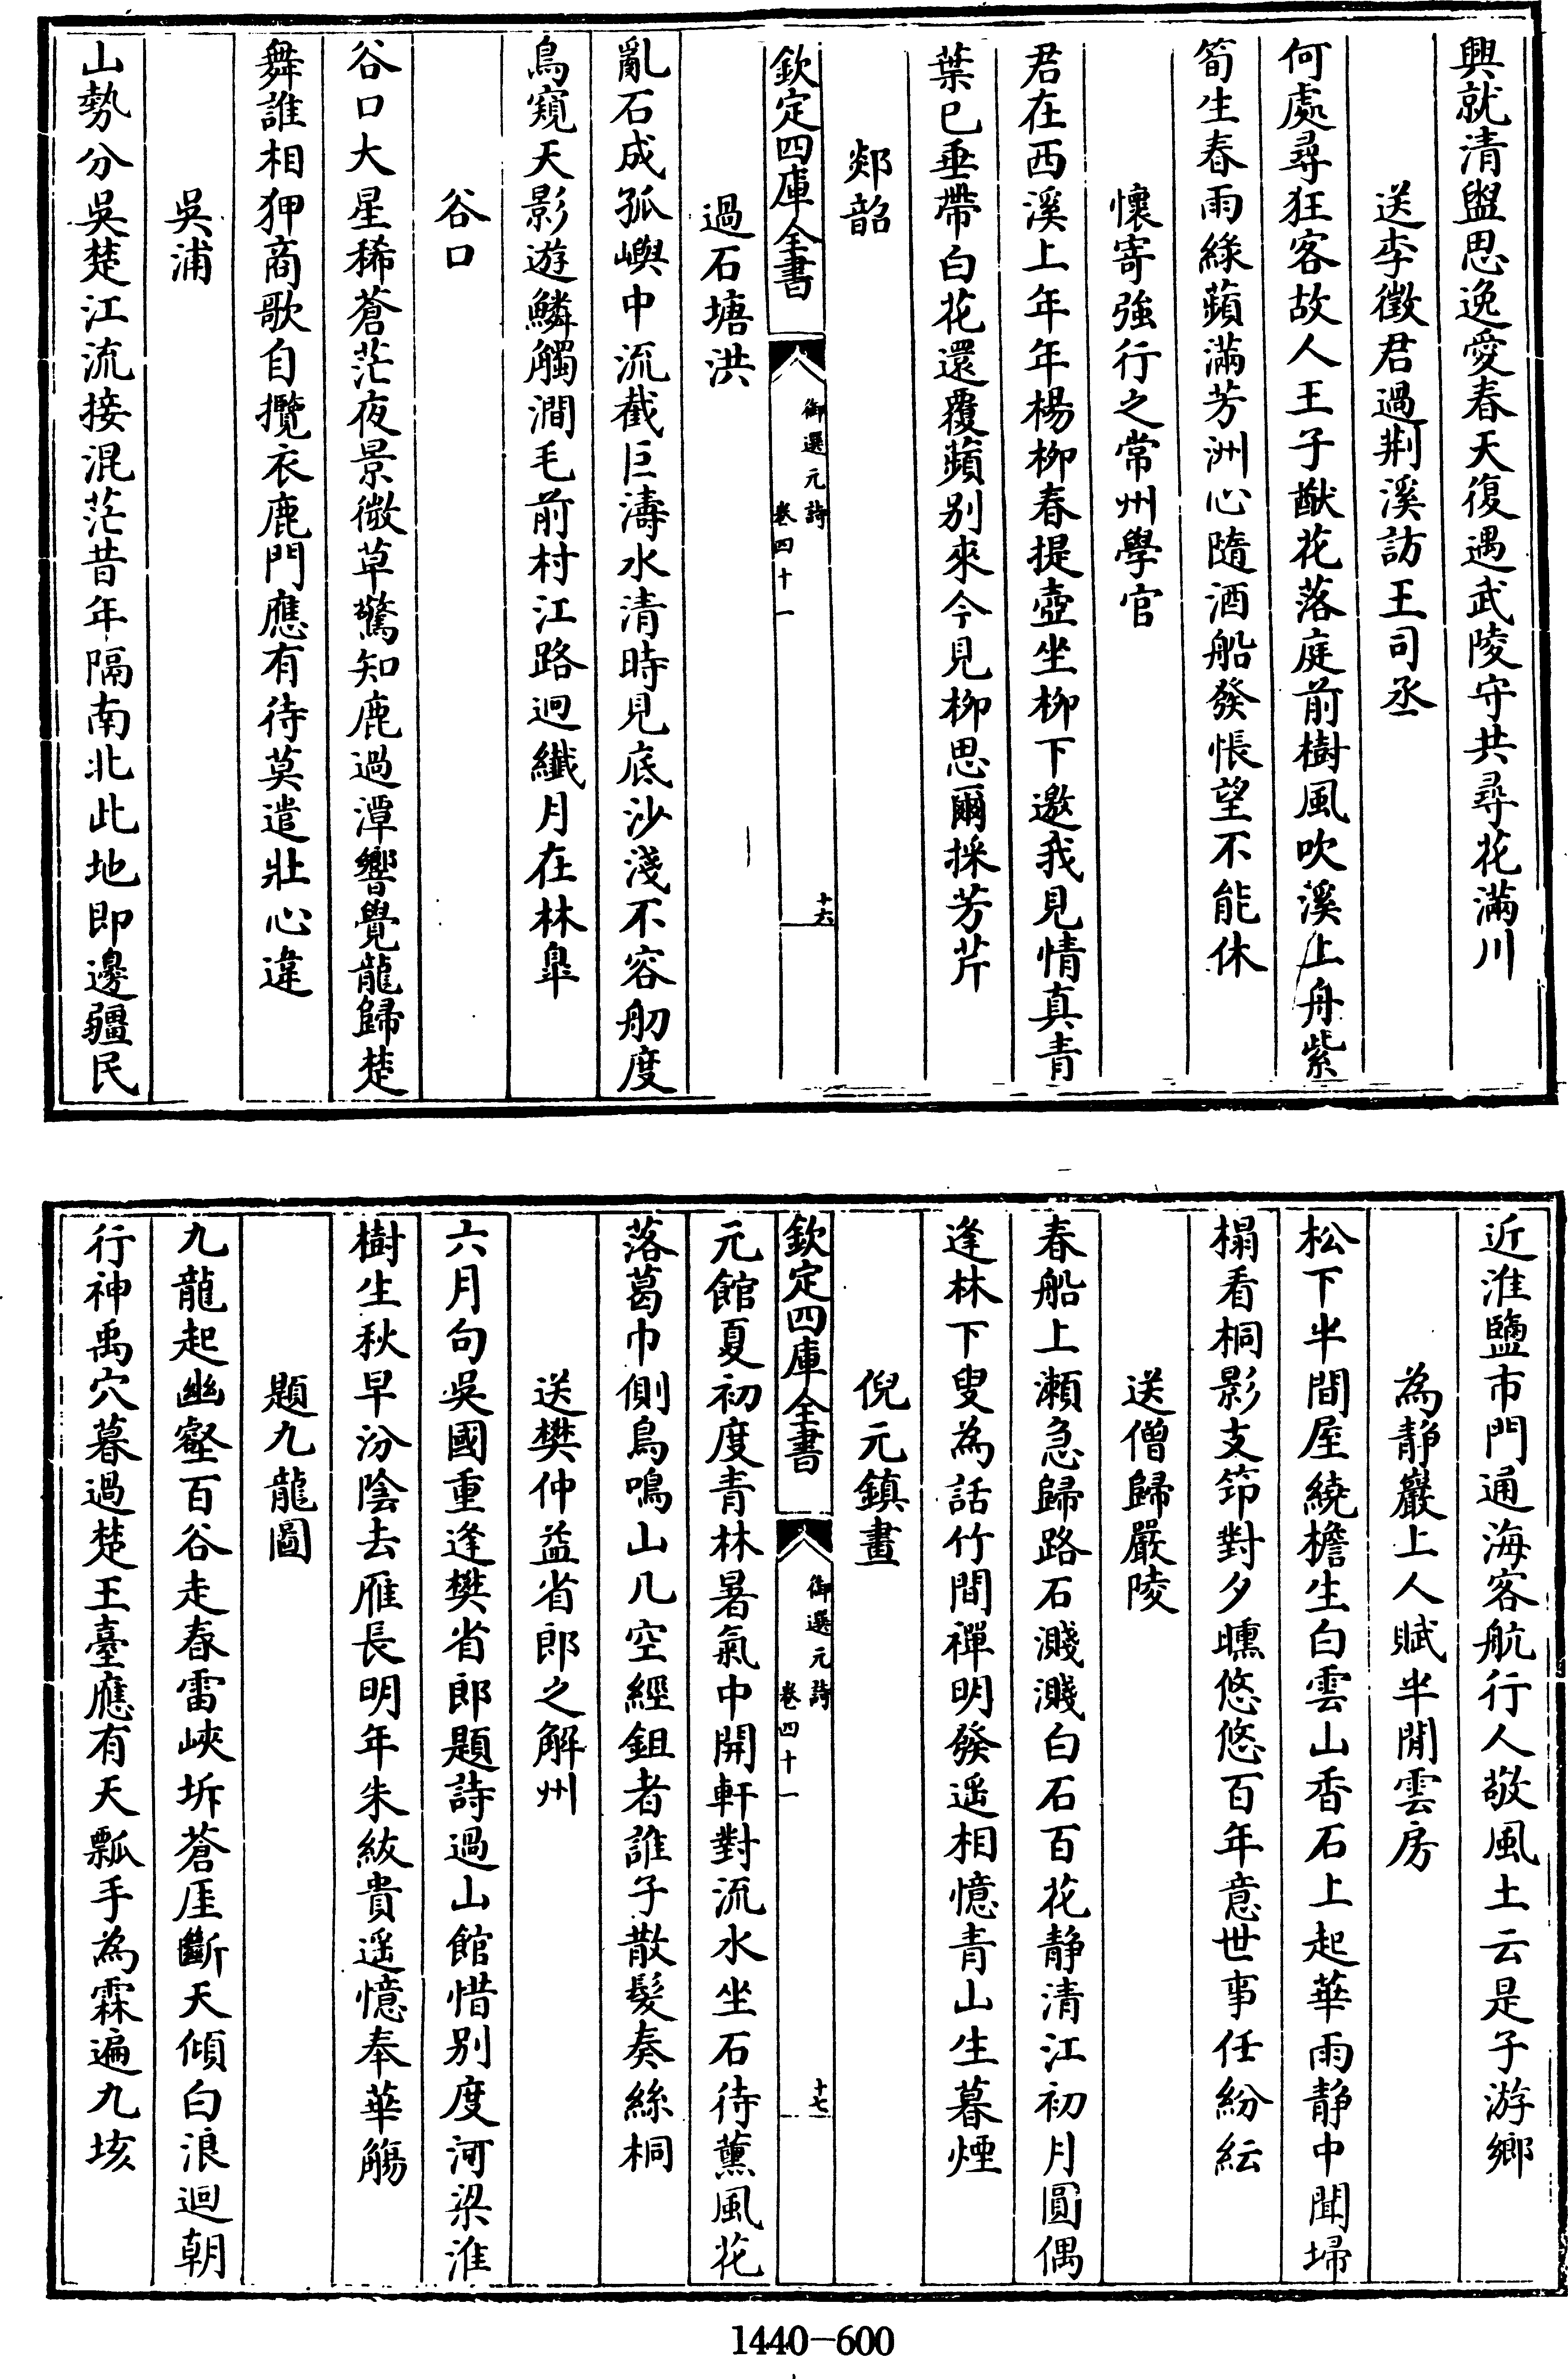 興就清盥思逸愛春天復遇武陵守共尋花滿川
送李徵君過荆溪訪王司丞
何處尋狂客故人王子猷花落庭前樹風吹溪上舟紫
筍生春雨綠蘋滿芳洲心隨酒船發悵望不能休
懷寄強行之常州學官
君在西溪上年年楊柳春提壺坐柳下邀我見情真青
葉已垂帶白花還覆蘋别來今見柳思爾採芳芹
郯韶
欽定四庫全書
御選元詩
卷四十一
十六
過石塘洪
亂石成孤嶼中流截巨濤水清時見底沙淺不容舠度
鳥窺天影遊鱗觸澗毛前村江路迥纖月在林臯
谷口
谷口大星稀蒼茫夜景微草驚知鹿過潭響覺龍歸楚
舞誰相狎商歌自攬衣鹿門應有待莫遣壯心違
吳浦
山勢分吳楚江流接混茫昔年隔南北此地即邊疆民
近淮鹽市門通海客航行人敬風土云是子游鄉
為静巖上人賦半閒雲房
松下半間屋繞檐生白雲山香石上起華雨静中聞埽
榻看桐影支笻對夕曛悠悠百年意世事任紛紜
送僧歸嚴陵
春船上瀬急歸路石濺濺白石百花静清江初月圓偶
逢林下叟為話竹間禪明發遥相憶青山生暮煙
倪元鎮畫
欽定四庫全書
御選元詩
卷四十一
十七
元館夏初度青林暑氣中開軒對流水坐石待薰風花
落葛巾側鳥鳴山几空經鉏者誰子散髮奏絲桐
送樊仲益省郎之解州
六月句吳國重逢樊省郎題詩過山館惜别度河梁淮
樹生秋早汾陰去雁長明年朱紱貴遥憶奉華觴
題九龍圖
九龍起幽壑百谷走春雷峽坼蒼厓斷天傾白浪迴朝
行神禹穴暮過楚王臺應有天瓢手為霖遍九垓
1440-600